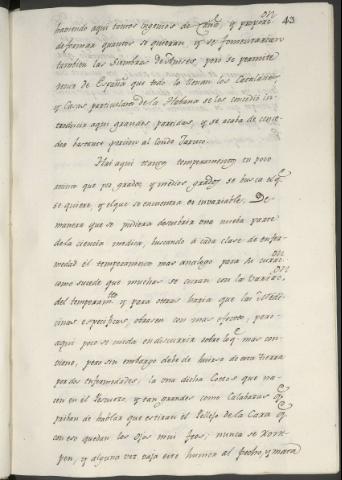 43
haciendo aqui tantos Ingenios de Caña, y propor.on
de formar quantos se quieran, y se fomentarían
tambien las Siembras de Arrices, pero se permite
venir de España que todo lo llenan los Catalanes
y Casas particulares de la Habana se les concedió in-
troducir aqui grandes partidas, y se acaba de conce-
der bastante porcion al Conde Jaruco.
Hai aqui tantos temperamentos en poco
mas que por grados y medios grados se busca el q.e
se quiere, y el que se encuentra es invariable. De
manera que se pudiera descubrir una nueva parte
de la ciencia medica, buscando á cada clase de enfer-
medad el temperamento mas analogo para su curac.on
como sucede que muchas se curan con la variac.on
del temperam.to y para otras haria que las Medi-
cinas especificas, obrasen con mas efectos; pero
aqui poco se cuida en discurrir sobre lo q.e mas con-
viene, pero sin embargo debe de huirse de esta tierra
por dos enfermedades; la una dicha Cotos que na-
cen en el Pescuezo, y tan grandes como Calabazas q.e
privan de hablar que estiran el Pellejo de la Cara q.e
con eso quedan los ojos mui feos; nunca se rom-
pen, y alguna vez vaja este humor al pecho, y mata